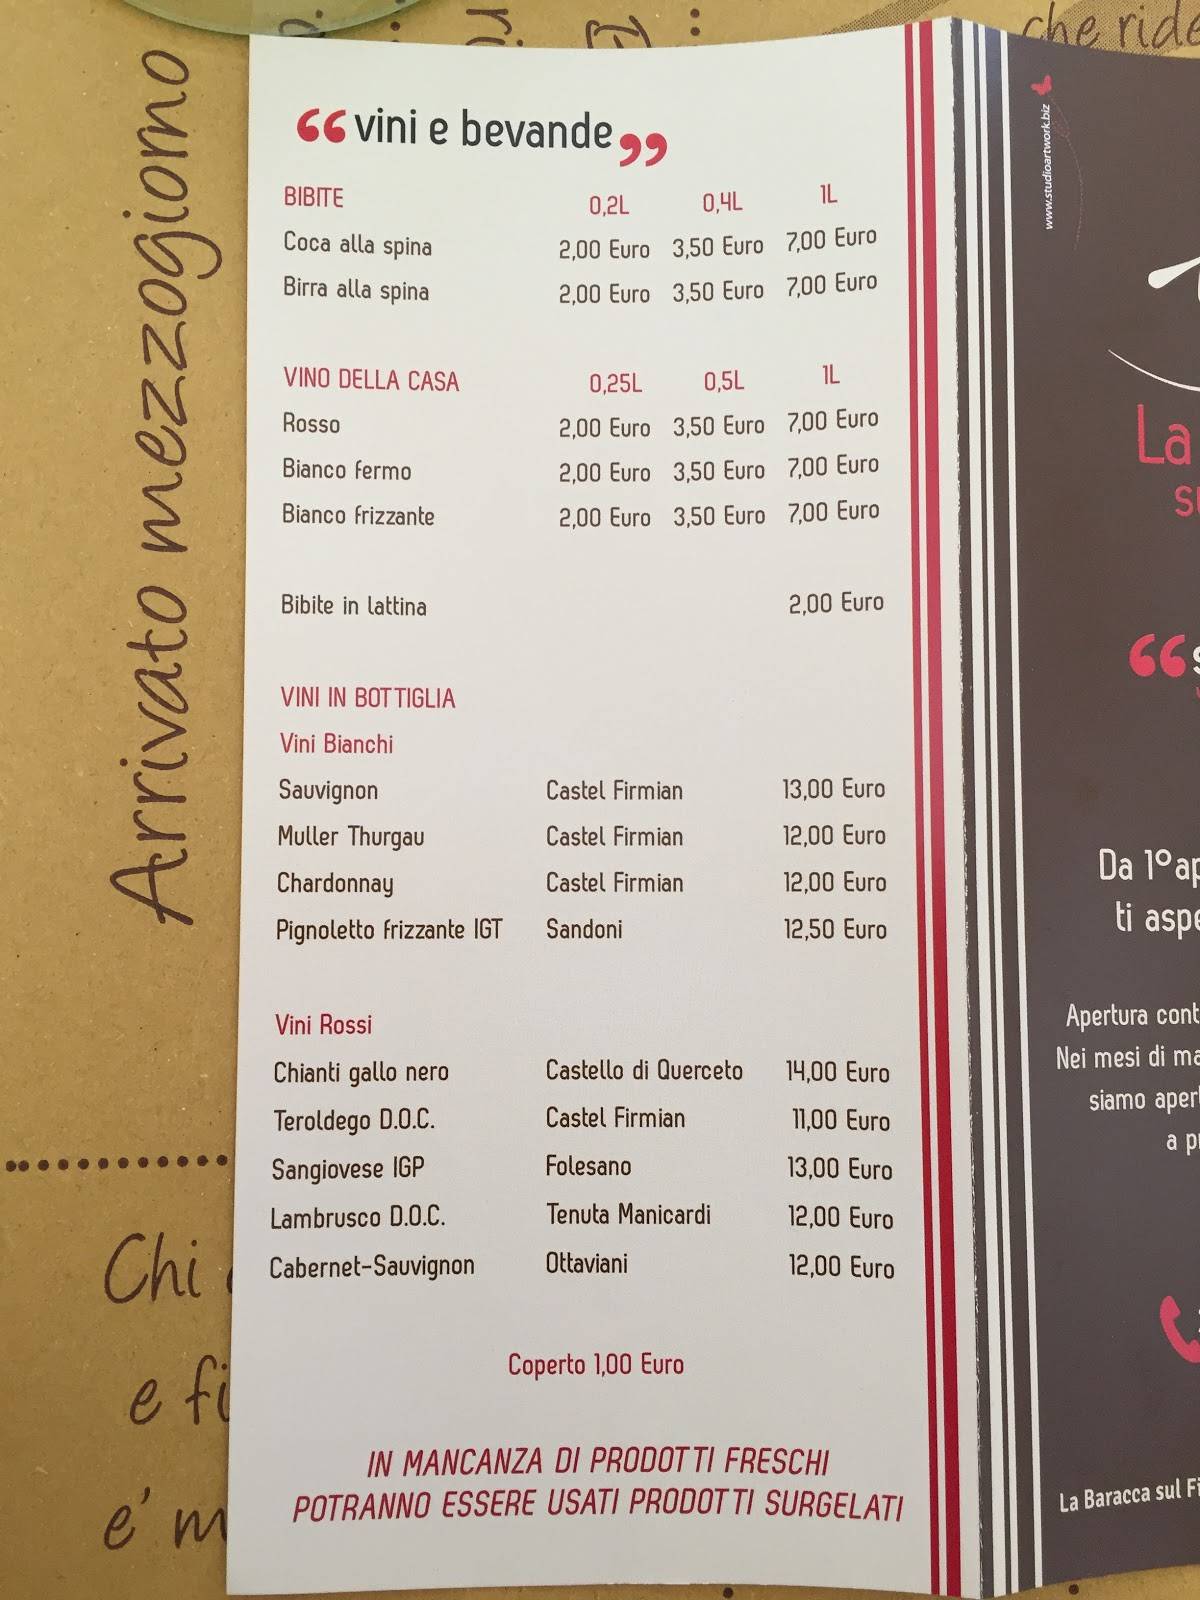 “vini e bevande”
BIBITE 0,2L 0,4L 1L
Coca alla spina 2,00 Euro 3,50 Euro 7,00 Euro
Birra alla spina 2,00 Euro 3,50 Euro 7,00 Euro
VINO DELLA CASA 0,25L 0,5L 1L
Rosso 2,00 Euro 3,50 Euro 7,00 Euro
Bianco fermo 2,00 Euro 3,50 Euro 7,00 Euro
Bianco frizzante 2,00 Euro 3,50 Euro 7,00 Euro
Bibite in lattina 2,00 Euro
VINI IN BOTTIGLIA
Vini Bianchi
Sauvignon Castel Firmian 13,00 Euro
Muller Thurgau Castel Firmian 12,00 Euro
Chardonnay Castel Firmian 12,00 Euro
Pignoletto frizzante IGT Sandoni 12,50 Euro
Vini Rossi
Chianti gallo nero Castello di Querceto 14,00 Euro
Teroldego D.O.C. Castel Firmian 11,00 Euro
Sangiovese IGP Folesano 13,00 Euro
Lambrusco D.O.C. Tenuta Manicardi 12,00 Euro
Cabernet-Sauvignon Ottaviani 12,00 Euro
Coperto 1,00 Euro
IN MANCANZA DI PRODOTTI FRESCHI
POTRANNO ESSERE USATI PRODOTTI SURGELATI
www.studioartwork.biz
La
Da 1°
ti
Apertura
Nei mesi di
siamo
a
La Baracca sul
Arrivato mezzogiorno
che
Chi
e
e'